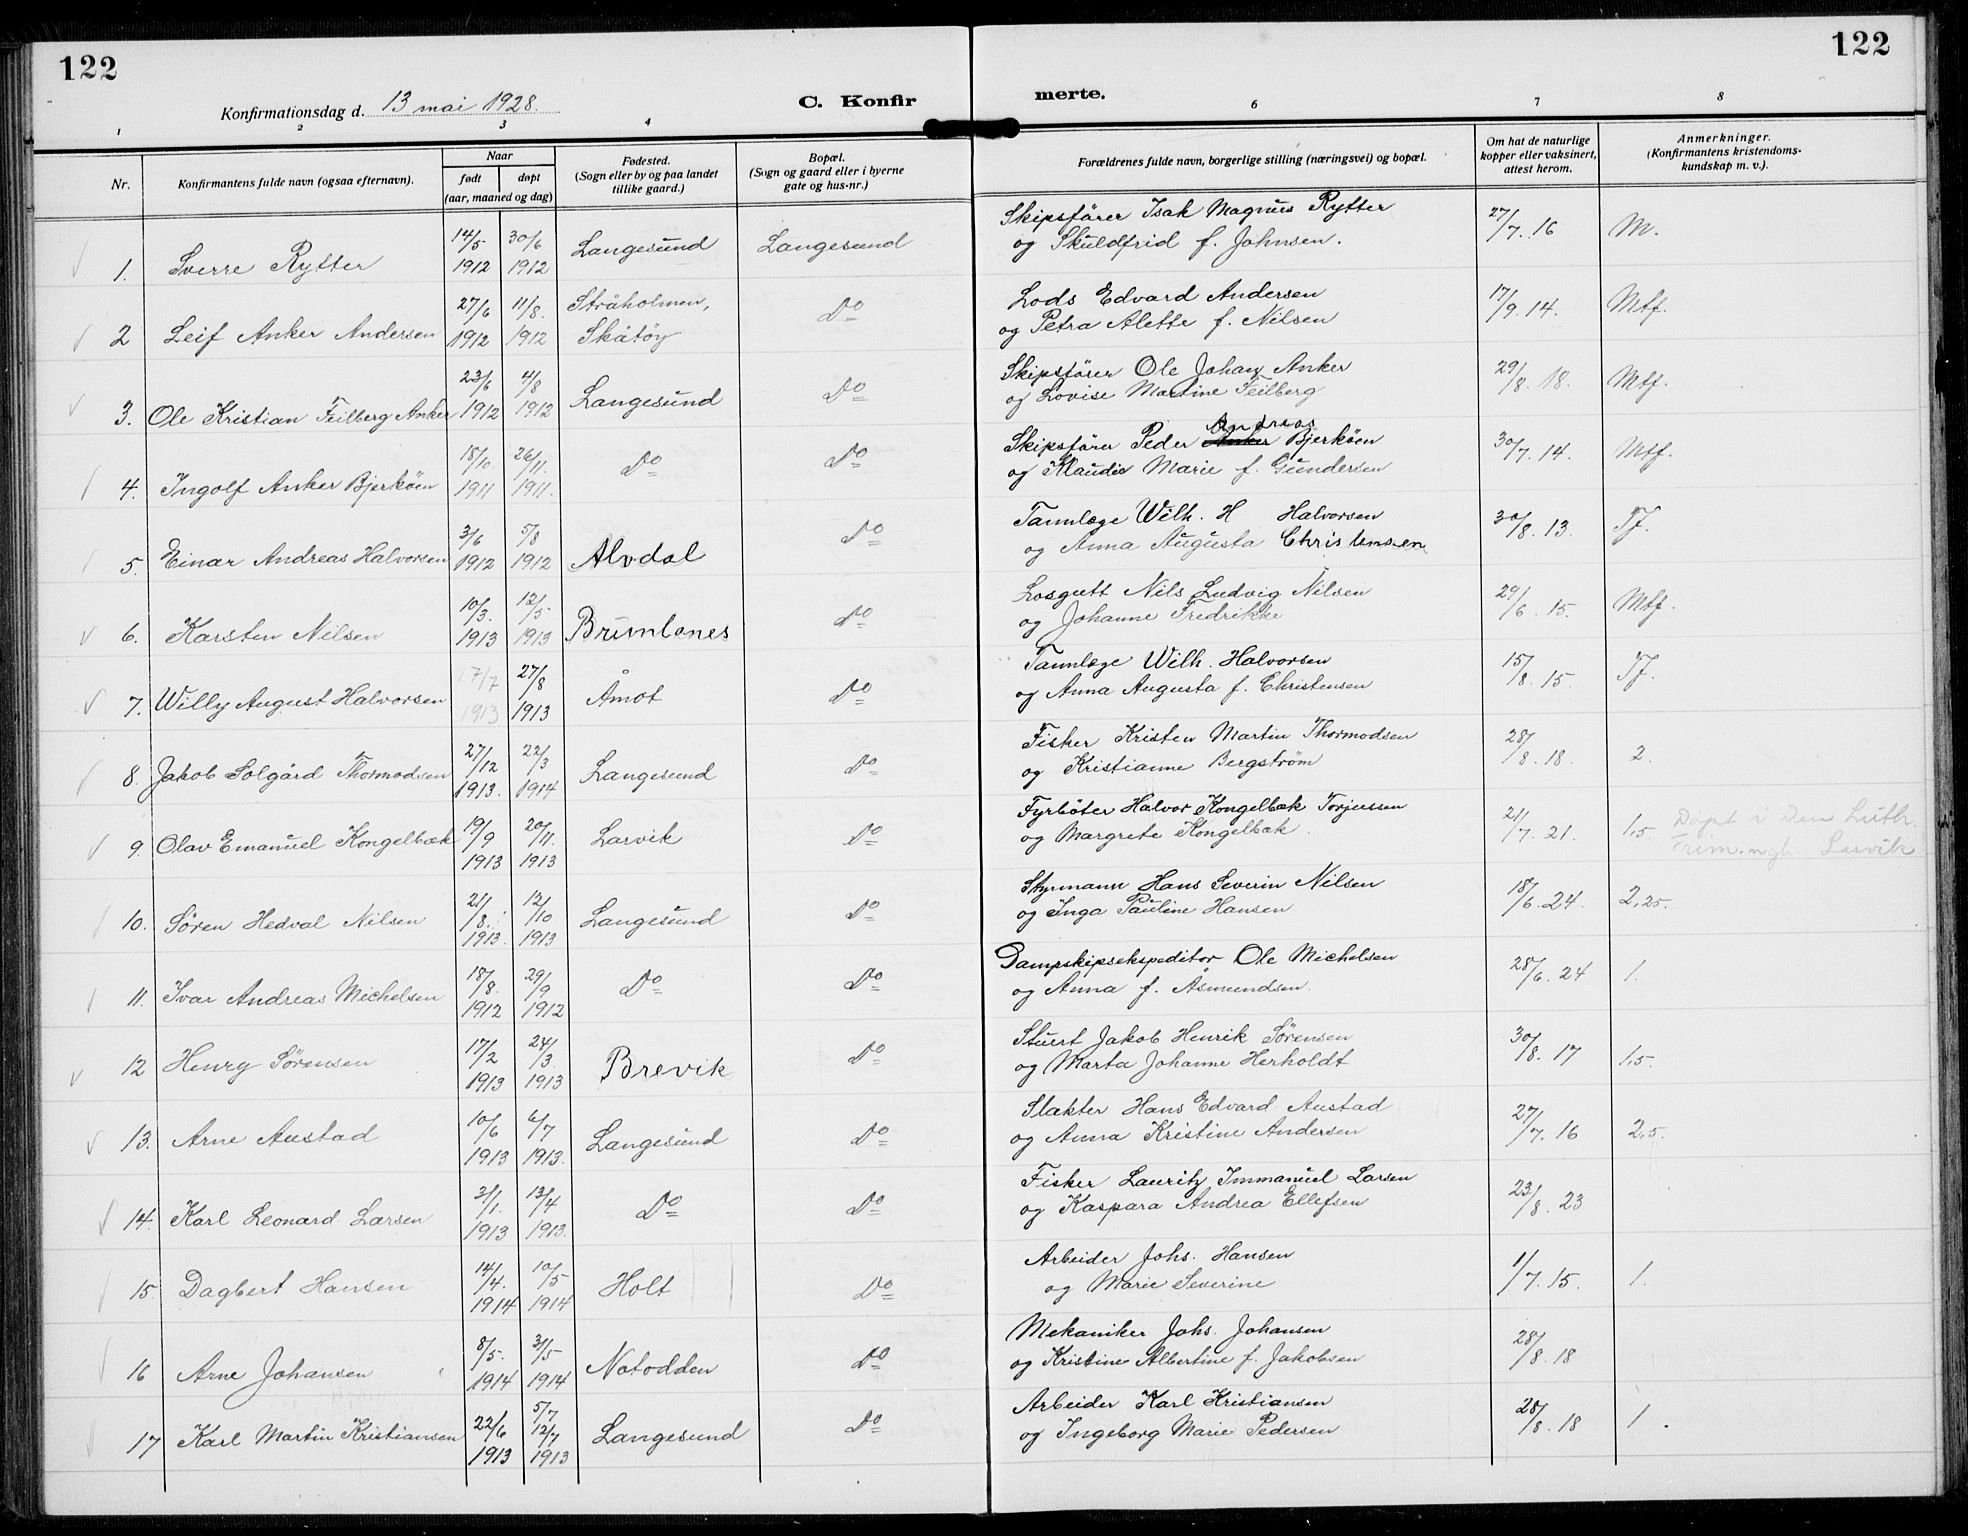 122
122
Konfirmationsdag d. 13 mai 1928.
C. Konfir
merte.
1 2 3 4 6 7 8
Nr.
Konfirmantens fulde navn (ogsaa efternavn).
Naar
født døpt
(aar, maaned og dag)
Fødested.
(Sogn eller by og paa landet
tillike gaard.)
Bopæl.
(Sogn og gaard eller i byerne
gate og hus-nr.)
Forældrenes fulde navn, borgerlige stilling (næringsvei) og bopæl.
Om hat de naturlige
kopper eller vaksinert,
attest herom.
Anmerkninger.
(Konfirmantens kristendoms-
kundskap m. v.).
1. Sverre Rytter 14/5 1912 30/6 1912 Langesund Langesund
Skipsfører Isak Magnus Rytter
og Skuldfrid f. Johnsen. 27/7.16 M.
2 Leif Anker Andersen 27/6 1912 11/8. 1912 Stråholmen, Skåtøy Do
Lods Edvard Andersen
og Petra Alette f. Nilsen 17/9.14. Mtf.
3. Ole Kristian Feilberg Anker 23/6 1912 4/8 1912 Langesund Do
Skipsfører Ole Johan Anker
og Lovise Martine Feilberg 29/8.18. Mtf.
4. Ingolf Anker Bjerkøen 18/10. 1911 26/11. 1911. Do Do
Andreas
Skipsfører Peder Anker Bjerkøen
og Klaudia Marie f. Gundersen 30/7.14. Mtf.
5. Einar Andreas Halvorsen 3/6 1912 5/8 1912 Alvdal Do
Tannlæge Wilh. H Halvorsen
og Anna Augusta Christensen 30/8.13. Tf.
6. Karsten Nilsen 10/3. 1913 12/5 1913 Brunlanes Do
Losgutt Nils Ludvig Nilsen
og Johanne Fredrikke 29/6.15. Mtf.
7. Willy August Halvorsen 17/7 1913 27/8 1913 Åmot Do
Tannlæge Wilh. Halvorsen
og Anna Augusta f. Christensen 15/8.15. Tf.
8. Jakob Solgård Thormodsen 27/12 1913. 22/3 1914 Langesund Do
Fisker Kristen Martin Thormodsen
og Kristianne Bergstrøm 28/8.18. 2.
9. Olav Emanuel Kongelbæk 19/9 1913 20/11. 1913 Larvik Do
Fyrbøter Halvor Kongelbæk Torjussen
og Margrete Kongelbæk. 21/7.21. 1,5 Døpt i Den Luth.
Larvik
10. Søren Hedval Nilsen 21/8. 1913. 12/10 1913 Langesund Do
Styrmann Hans Severin Nilsen
og Inga Pauline Hansen 18/6.24. 2,25.
11. Ivar Andreas Michelsen 18/8. 1912 29/9 1912 Do Do
Dampskipsekspeditør Ole Michelsen
og Anna f. Åsmundsen. 28/6.24 1.
12 Henry Sørensen 17/2 1913 24/3. 1913 Brevik Do
Stuert Jakob Henrik Sørensen
og Marta Johanne Herholdt 30/8.17 1,5.
13. Arne Austad 10/6 1913 6/7 1913. Langesund Do
Slakter Hans Edvard Austad
og Anna Kristine Andersen 27/7.16 2,5.
14. Karl Leonard Larsen 3/1. 1913 13/4 1913. Do Do
Fisker Lauritz Immanuel Larsen
og Kaspara Andrea Ellefsen 23/8.23
15. Dagbert Hansen 14/4. 1914 10/5 1914 Holt Do
Arbeider Johs. Hansen
og Marie Severine 1/7.15. 1.
16 Arne Johansen 8/5. 1914 31/5 1914 Notodden Do
Mekaniker Johs. Johansen
og Kristine Albertine f. Jakobsen 28/8.18
17 Karl Martin Kristiansen 22/6 1913 5/7 12/7 1913 Langesund Do
Arbeider Karl Kristiansen
og Ingeborg Marie Pedersen 28/8.18 1.